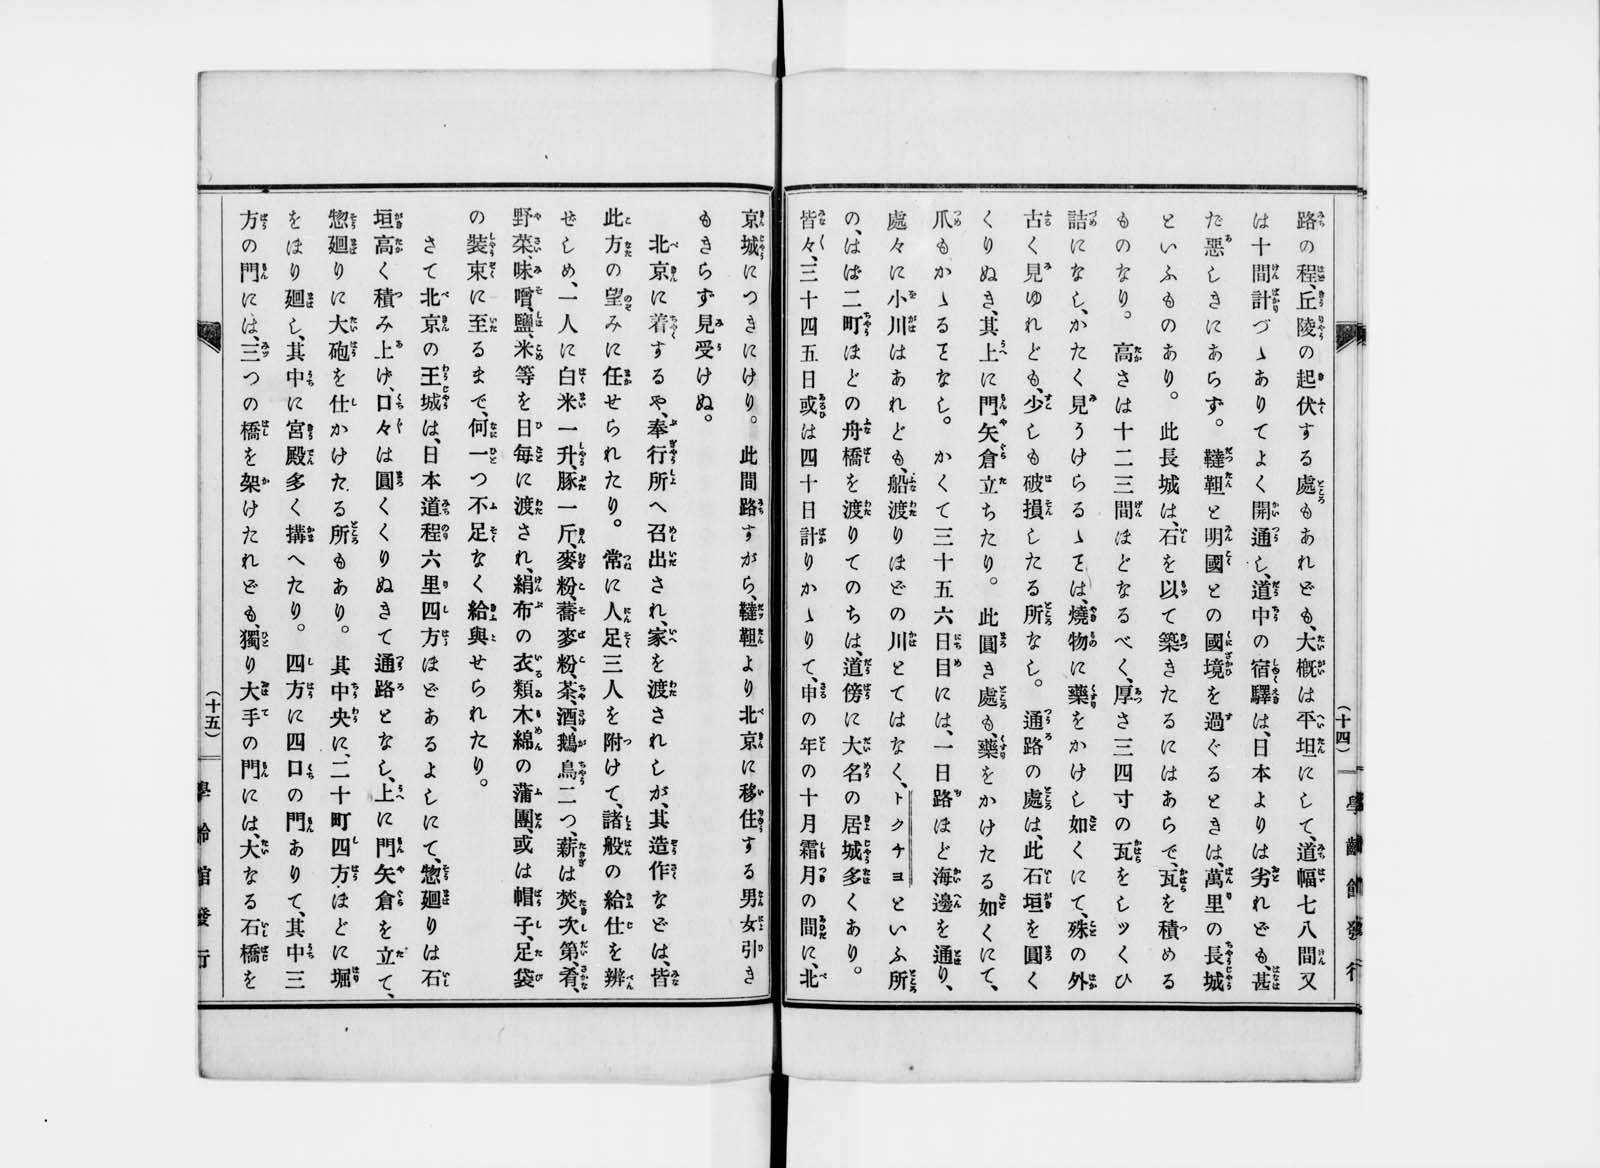 路の程、丘陵の起伏する處もあれども、大概は平坦にして、道幅七八間又
は十間計づゝありてよく開通し、道中の宿驛は、日本よりは劣れども、甚
だ惡しきにあらず。韃靼と明國との國境を過ぐるときは、萬里の長城
といふものあり。此長城は、石を以て築きたるにはあらで、瓦を積める
ものなり。高さは十二三間ほどなるべく、厚さ三四寸の瓦をシックひ
詰になし、かたく見うけらるゝヿは、燒物に藥をかけし如くにて、殊の外
古く見ゆれども、少しも破損したる所なし。通路の處は、此石垣を圓く
くりぬき、其上に門矢倉立ちたり。此圓き處も、藥をかけたる如くにて、
爪もかゝるヿなし。かくて三十五六日目には、一日路ほど海邊を通り、
處々に小川はあれども、船渡りほどの川とてはなく、トクチヨといふ所
の、はば二町ほどの舟橋を渡りてのちは、道傍に大名の居城多くあり。
皆々、三十四五日或は四十日計りかゝりて、申の年の十月霜月の間に、北
(十四)
學齡館發行
京城につきにけり。此間路すがら、韃靼より北京に移住する男女引き
もきらず見受けぬ。
北京に着するや、奉行所へ召出され、家を渡されしが、其造作などは、皆
此方の望みに任せられたり。常に人足三人を附けて、諸般の給仕を辨
ぜしめ、一人に白米一升、豚一斤、麥粉、蕎麥粉、茶、酒、鵝鳥二つ、薪は焚次第、肴、
野菜、味噌、鹽、米等を日毎に渡され、絹布の衣類木綿の蒲團、或は帽子、足袋
の裝束に至るまで、何一つ不足なく給與せられたり。
さて北京の王城は、日本道程六里四方ほどあるよしにて、惣廻りは石
垣高く積み上げ、口々は圓くくりぬきて通路となし、上に門矢倉を立て、
惣廻りに大砲を仕かけたる所もあり。其中央に、二十町四方ほどに堀
をほり廻し、其中に宮殿多く搆へたり。四方に四口の門ありて、其中三
方の門には、三つの橋を架けたれども、獨り大手の門には、大なる石橋を
(十五)
學齡館發行